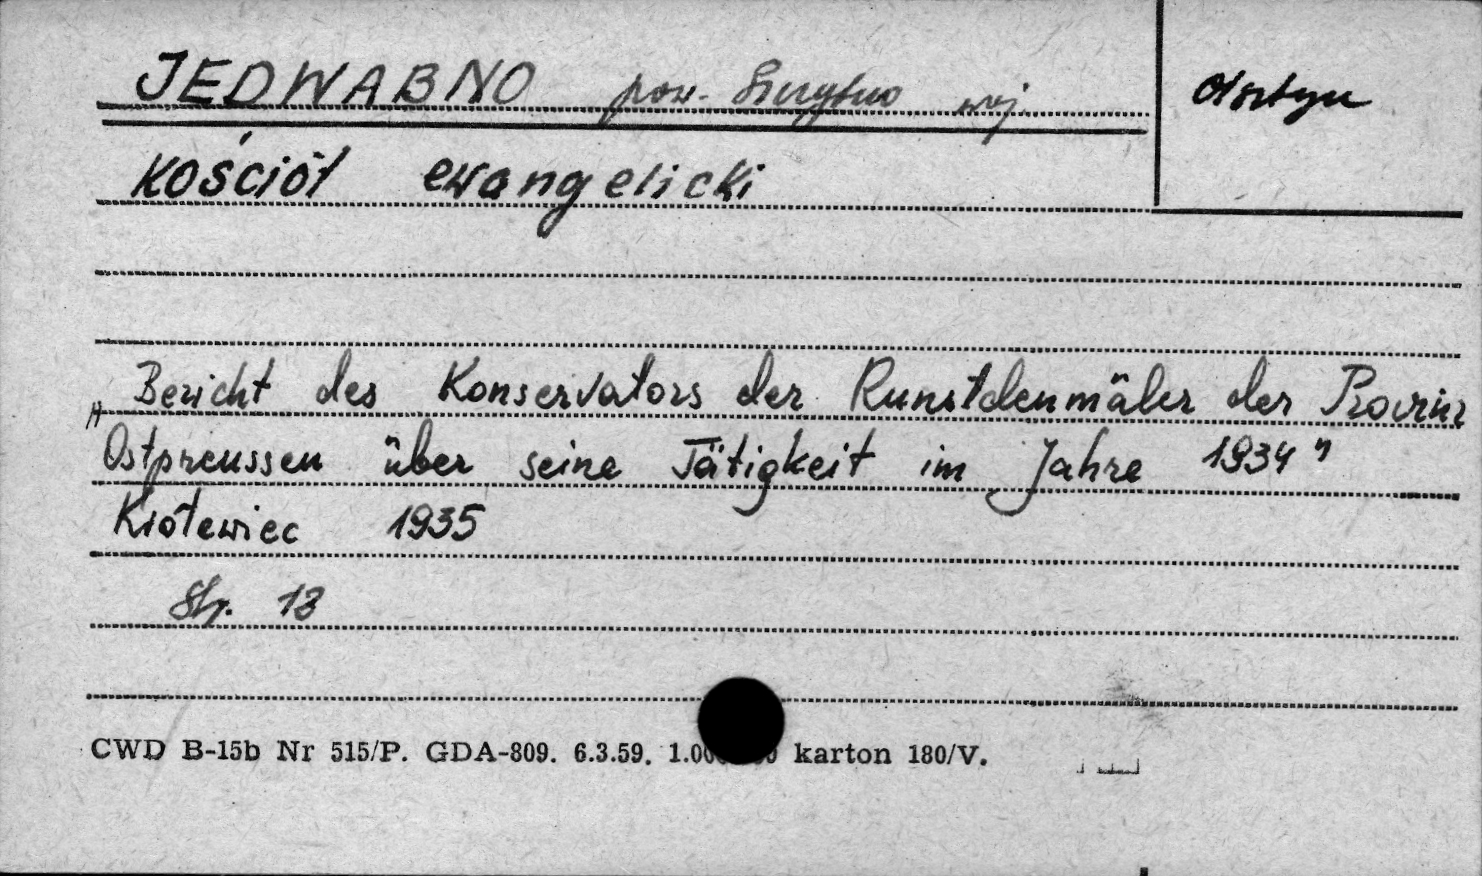 JEDWABNO pow. Szczytno woj. Olsztyn
Kościół ewangelicki
"Bericht des Konservators der Kunstdenmäler der Provinz
Ostpreussen über seine Tätigkeit im Jahre 1934"
Królewiec 1935
Str. 13
CWD B-15b Nr 515/P. GDA-809. 6.3.59. karton 180/V.